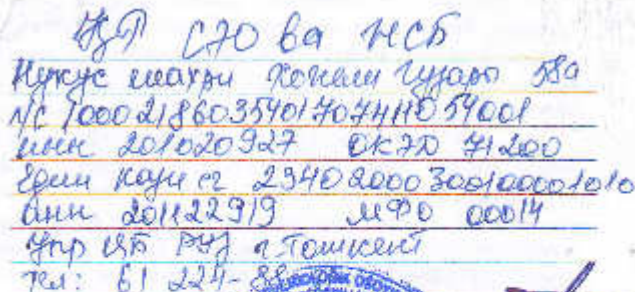 ҚР СЭО ва ЖСБ
Нукус шахри Хонаш гузари 58а
л/с 100021860354017074110 54001
инн 201020927 ОКЭД 71200
Един казн сг 23402000300100001010
инн 201122919 МФО 00014
Упр ЦБ РУз г.Ташкент
тел: 61 224-88